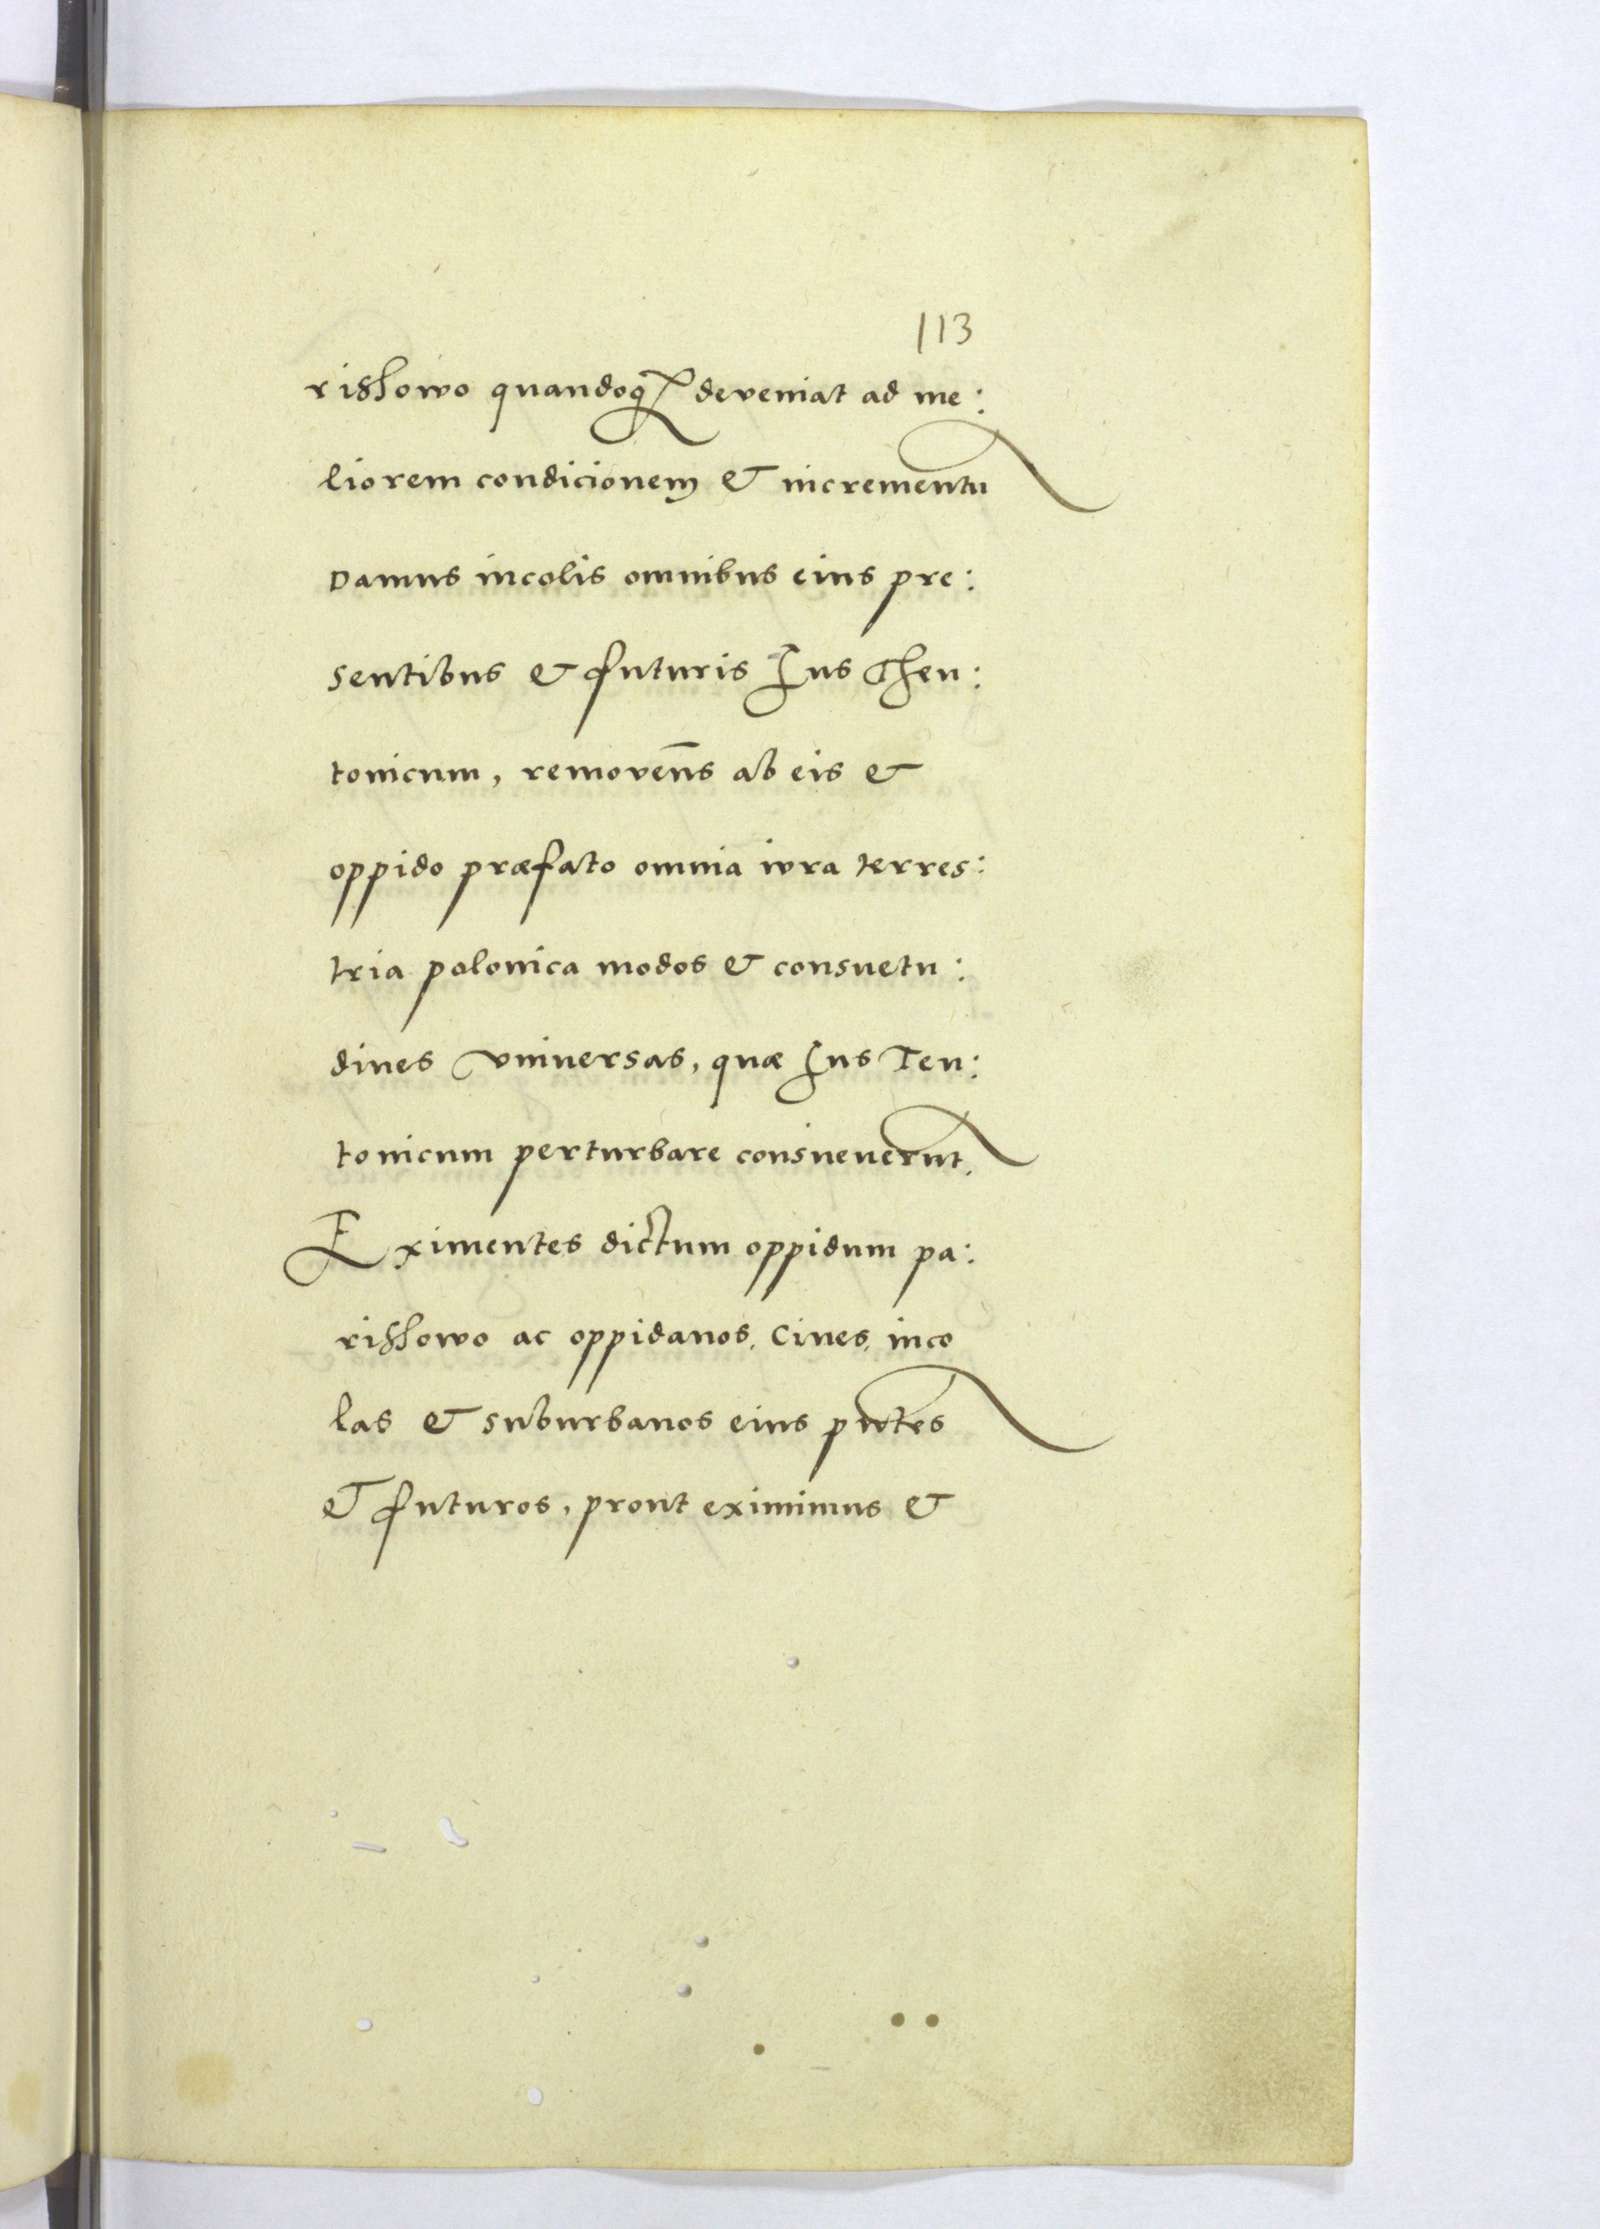 113
risshowo quandoq deveniat ad me:
liorem condicionem & incrementu
Damus incolis omnibus eius pre:
sentibus & futuris Ius Theu:
tonicum, removen̄s ab eis &
oppido præfato omnia iura terres:
tria polonica modos & consuetu:
dines vniuersas, quæ Ius Teu:
tonicum perturbare consueuerut.
Eximentes dictum oppidum pa:
risshowo ac oppidanos, Ciues, inco
las & suburbanos eius pntes
& futuros, prout eximimus &